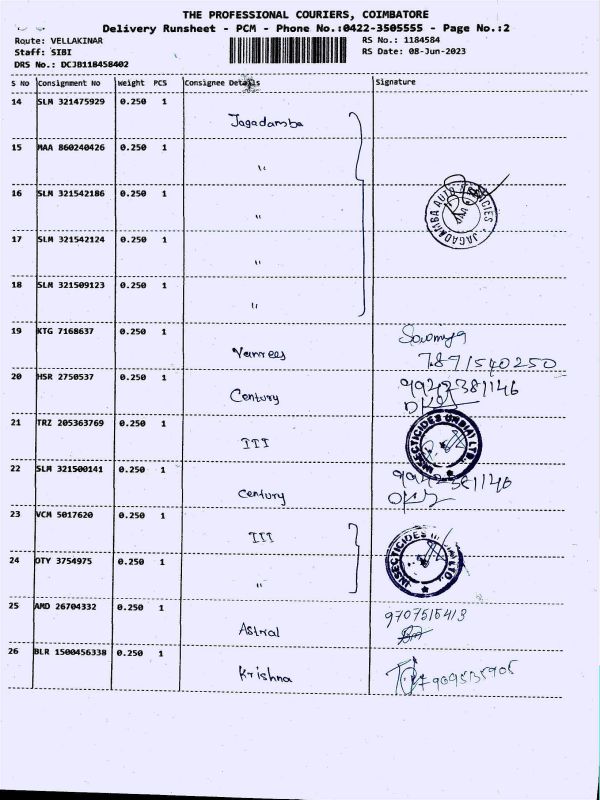 THE PROFESSIONAL COURIERS, COIMBATORE
Delivery Runsheet - PCM - Phone No.:0422-3505555 - Page No.:2
Route: VELLAKINAR
RS No.: 1184584
Staff: SIBI
RS Date: 08-Jun-2023
DRS No.: DCJB118458402
S No Consignment No Weight PCS Consignee Details Signature
14 SLM 321475929 0.250 1
Jagadamba
15 MAA 860240426 0.250 1
"
16 SLM 321542186 0.250 1
"
JAGADAMBA AUTO AGENCIES
17 SLM 321542124 0.250 1
"
18 SLM 321509123 0.250 1
"
19 KTG 7168637 0.250 1
Sowmya
Vanrees 7871540250
20 HSR 2750537 0.250 1
9942381146
Century
21 TRZ 205363769 0.250 1
III
INSECTICIDES (INDIA) LTD.
22 SLM 321500141 0.250 1
9942381146
Century
23 VCM 5017620 0.250 1
III
24 OTY 3754975 0.250 1
"
INSECTICIDES LTD.
25 AMD 26704332 0.250 1
9707515413
Astral
26 BLR 1500456338 0.250 1
Krishna 7909535905